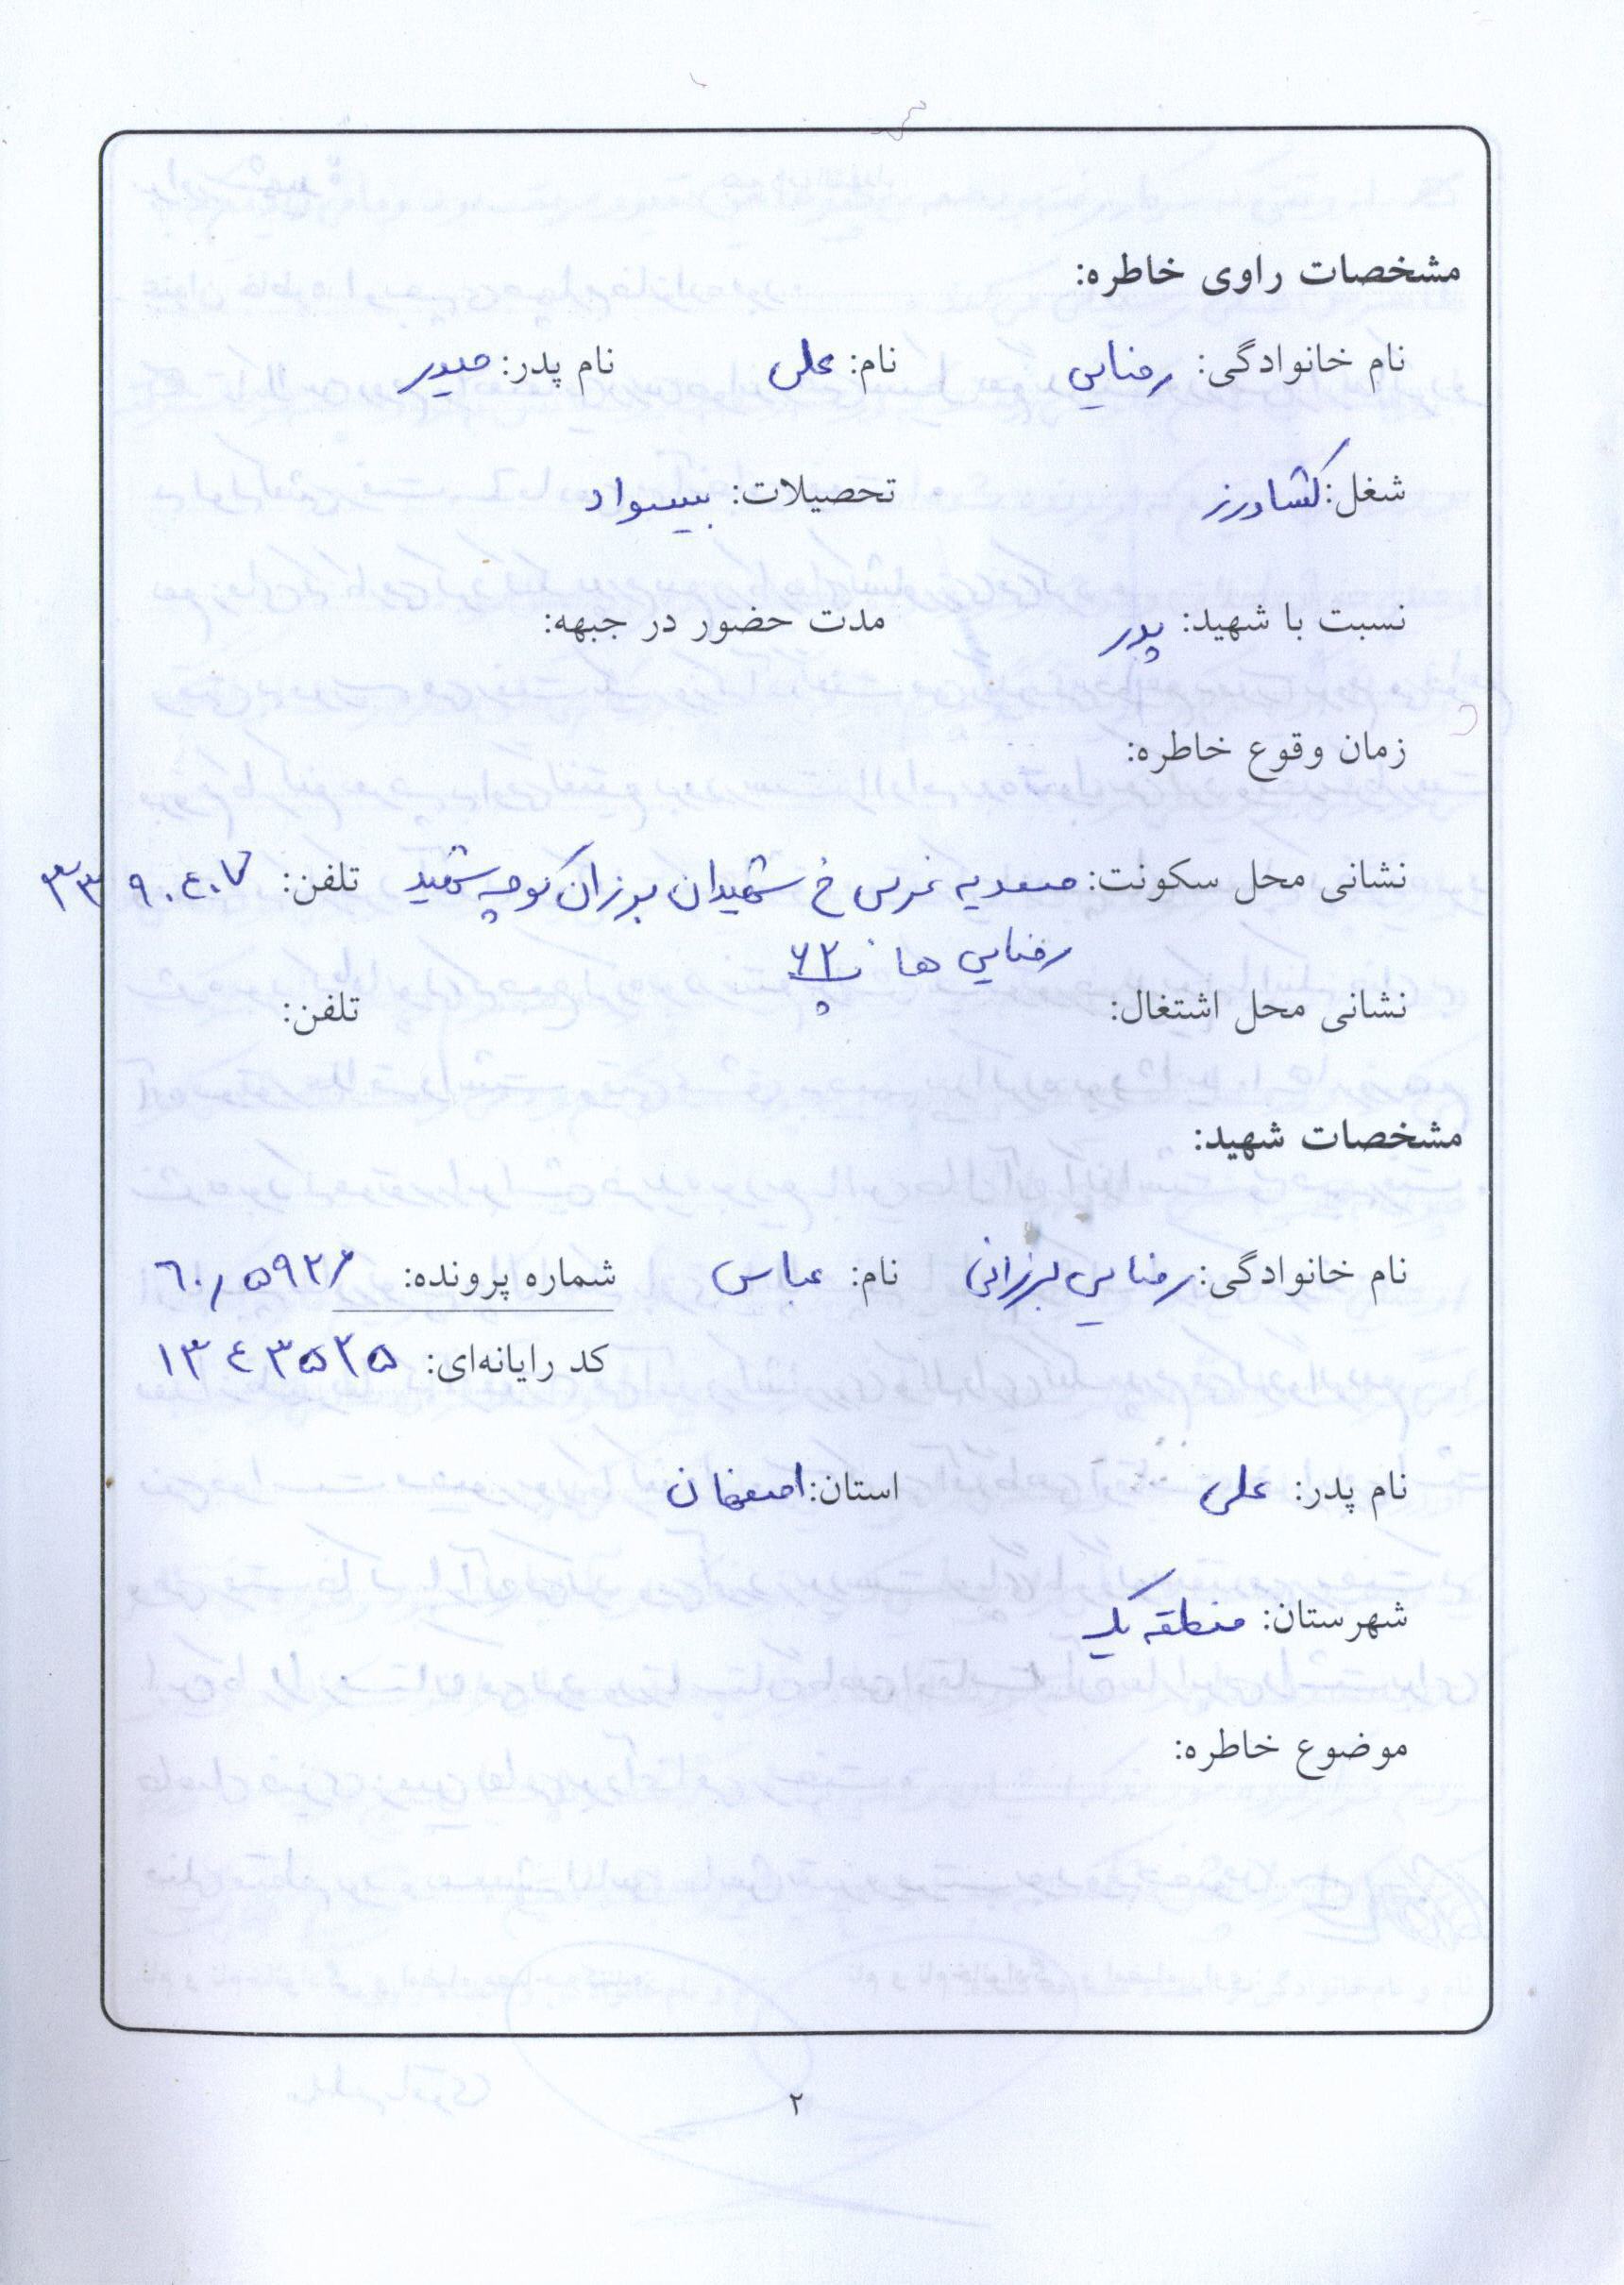 مشخصات راوی خاطره:
نام خانوادگی: رضایی نام: علی نام پدر: حیدر
شغل: کشاورز تحصیلات: بیسواد
نسبت با شهید: پدر مدت حضور در جبهه:
زمان وقوع خاطره:
نشانی محل سکونت: صمدیه غربی خ شهیدان برزان کوچه شهید تلفن: ۳۳۹۰۴۰۷
رضایی ها پ ۶۲
نشانی محل اشتغال: تلفن:
مشخصات شهید:
نام خانوادگی: رضایی برزانی نام: عباس شماره پرونده:
کد رایانه‌ای: ۱۳۴۳۵۲۵
نام پدر: علی استان: اصفهان
شهرستان: منطقه یک
موضوع خاطره:
۲